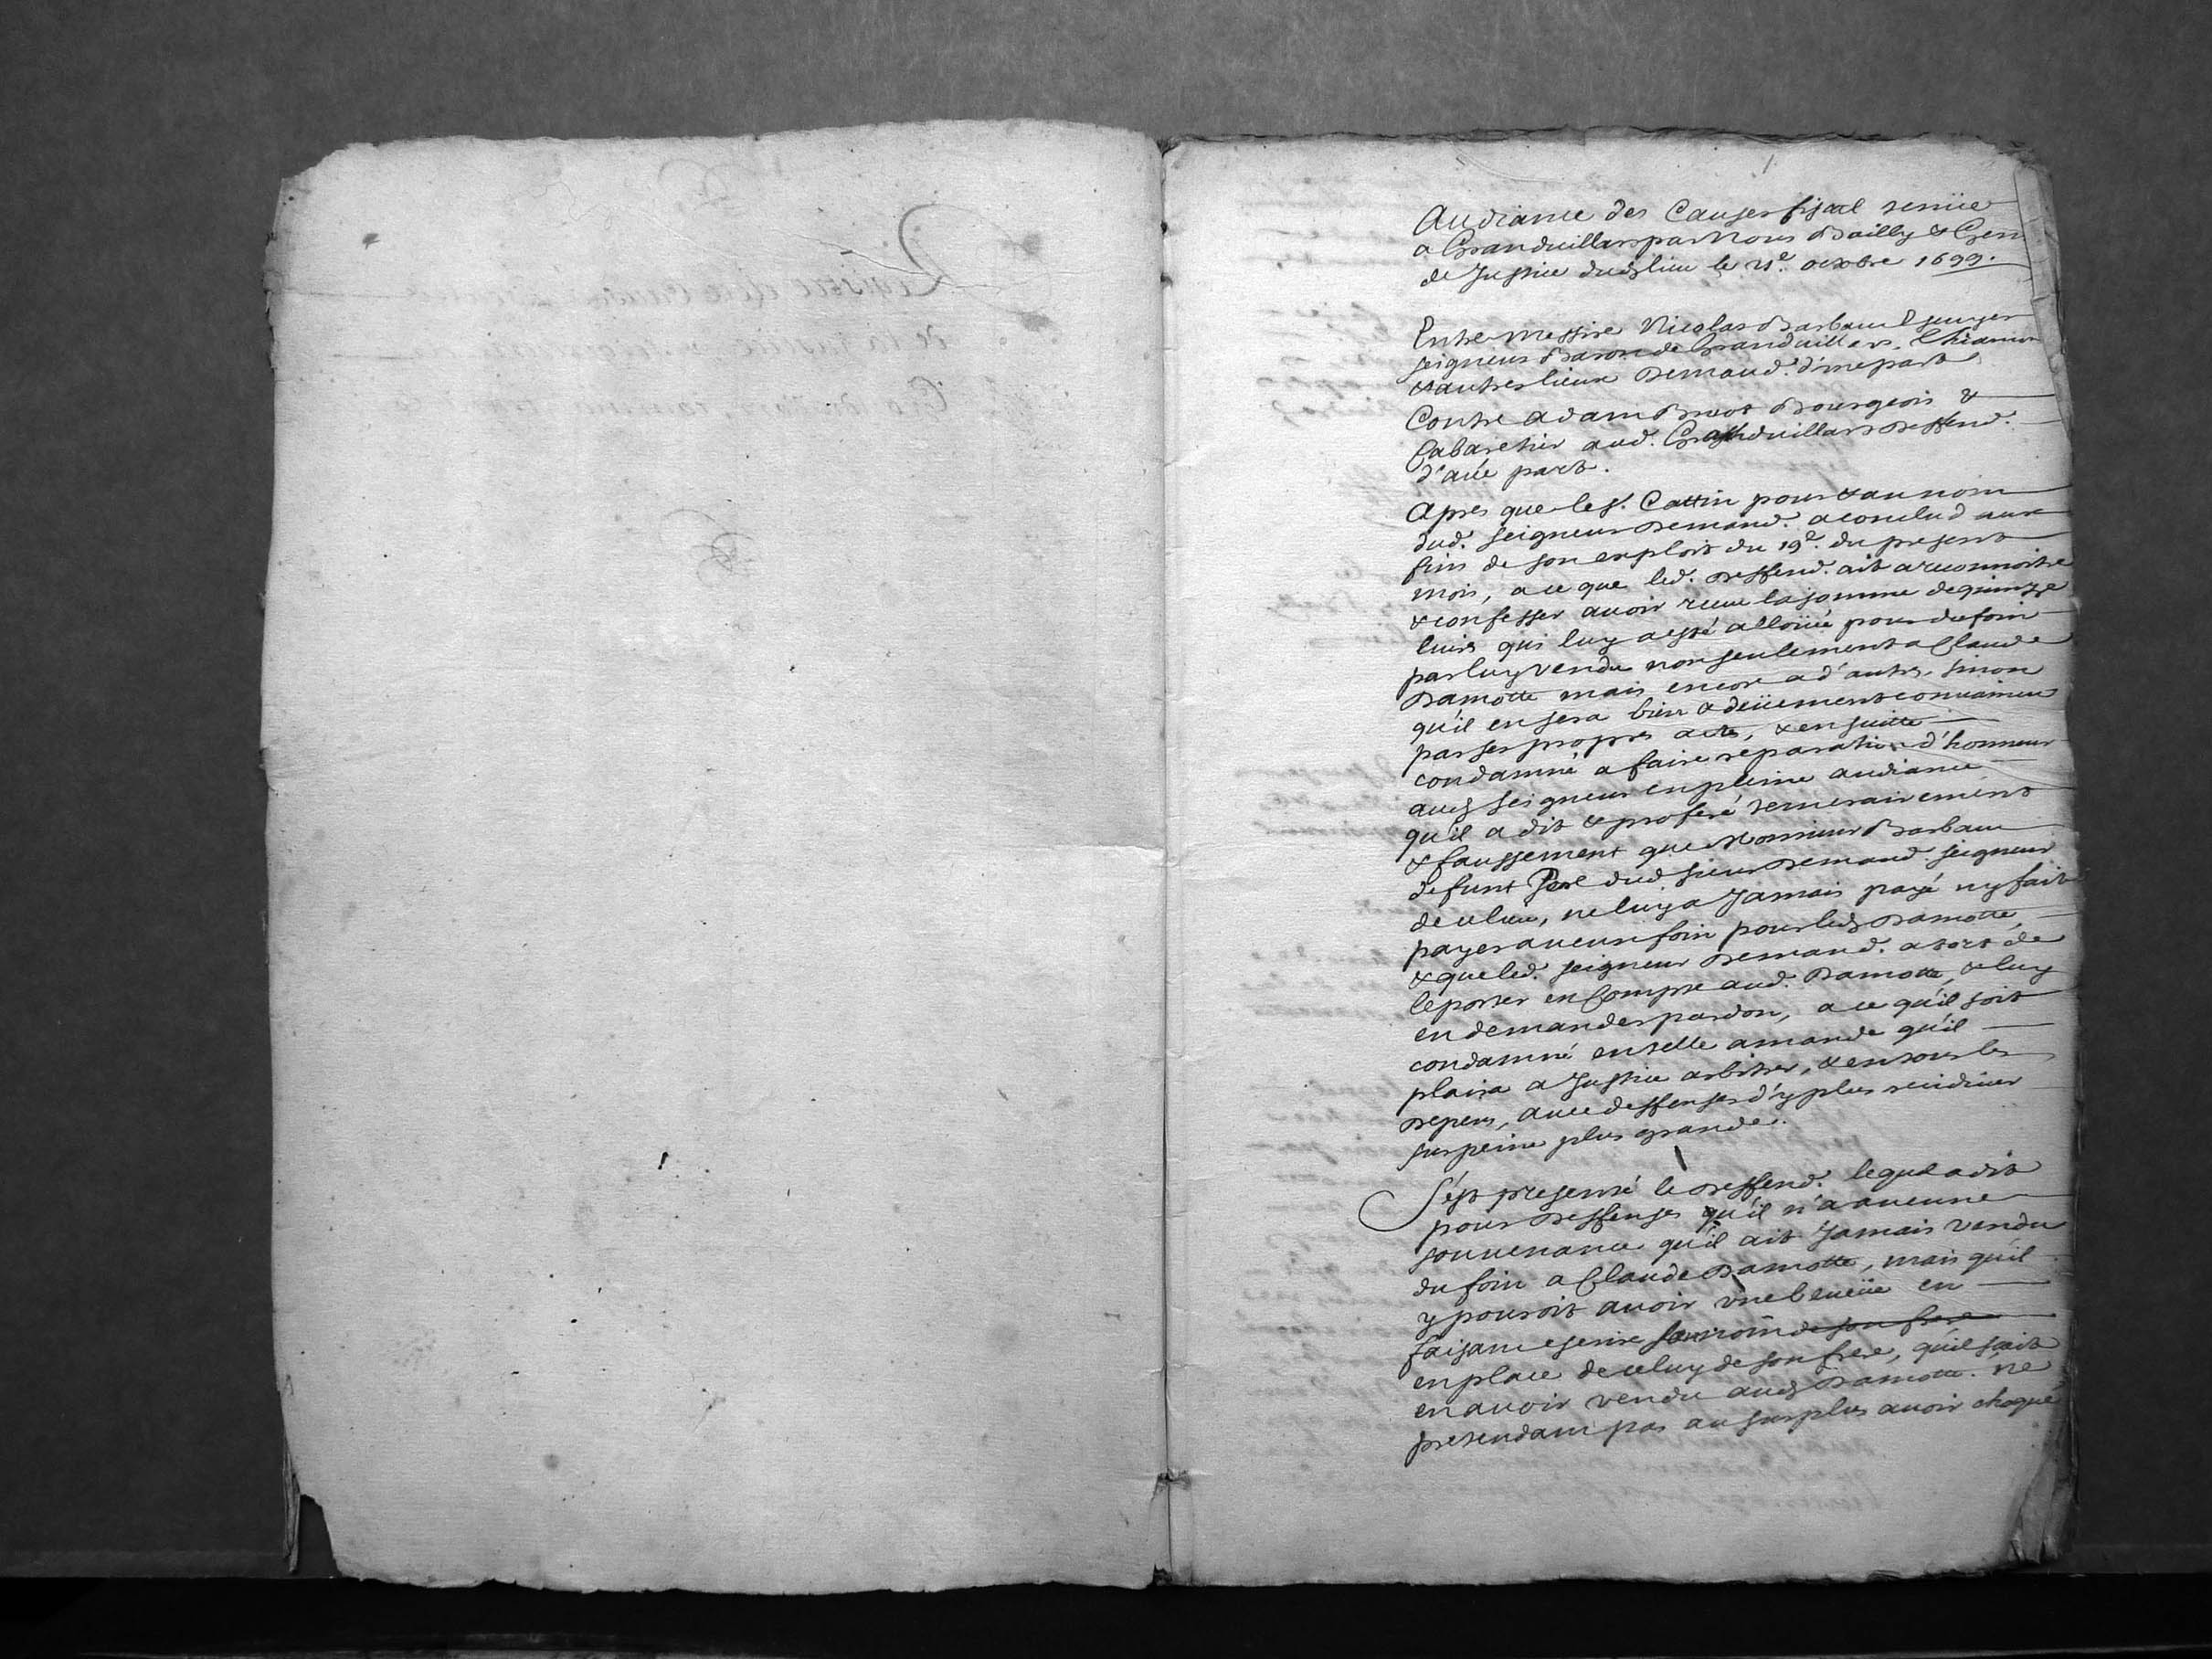 Audiance des Causes fiscal tenüe
a Granduillars par Nous Bailly & Gens
de Justice dudlieu le 21e. octobre 1699.
Entre Messire Nicolas Barbaud Escuyer
seigneur Baron de Granduillars, Thiamon
& autres lieux Demand.r d'une part
Contre Adam Bruot Bourgeois &
Cabaretier aud. Granduillars Deffend.
d'aûe part.
Apres que le S.r Cattin pour & au nom
dud. Seigneur Demand. a conclud aux
fins de son exploit du 19e. du present
mois, a ce que led. Deffend. ait a reconnoitre
& confesser auoir receu la somme de quinze
liures qui luy a esté alloüée pour du foin
par luy vendu non seulement a Claude
Damotte mais encore a d'autres, sinon
qu'il en sera bien & deüement conuaincu
par ses propres actes, & ensuitte
condamné a faire reparation d'honneur
aud Seigneur en pleine audiance
qu'il a dit & proferé temerairement
& faussement que Monsieur Barbaud
defunt Pere dud sieur Demand. seigneur
de ce lieu, ne luy a Jamais payé ny fait
payer aucun foin pour led Damotte,
& que led. seigneur Demand. a tort de
le porter en Compte aud. Damotte, & luy
en demander pardon, a ce qu'il soit
condamné en telle amande qu'il
plaira a Justice arbitrer, & en tous les
depens, auec deffenses d'y plus recidiuer
sus peine plus grande.
S'est presenté le Deffend. lequel a dit
pour Deffenses qu'il n'a aucune
souuenance qu'il ait Jamais vendu
du foin a Claude Damotte, mais qu'il
y pouroit auoir vne beueüe en
faisant escrire son nom de son frere
en place de celuy de son frere, qu'il scait
en auoir vendu aud Damotte. ne
pretendant pas au surplus auoir choqué